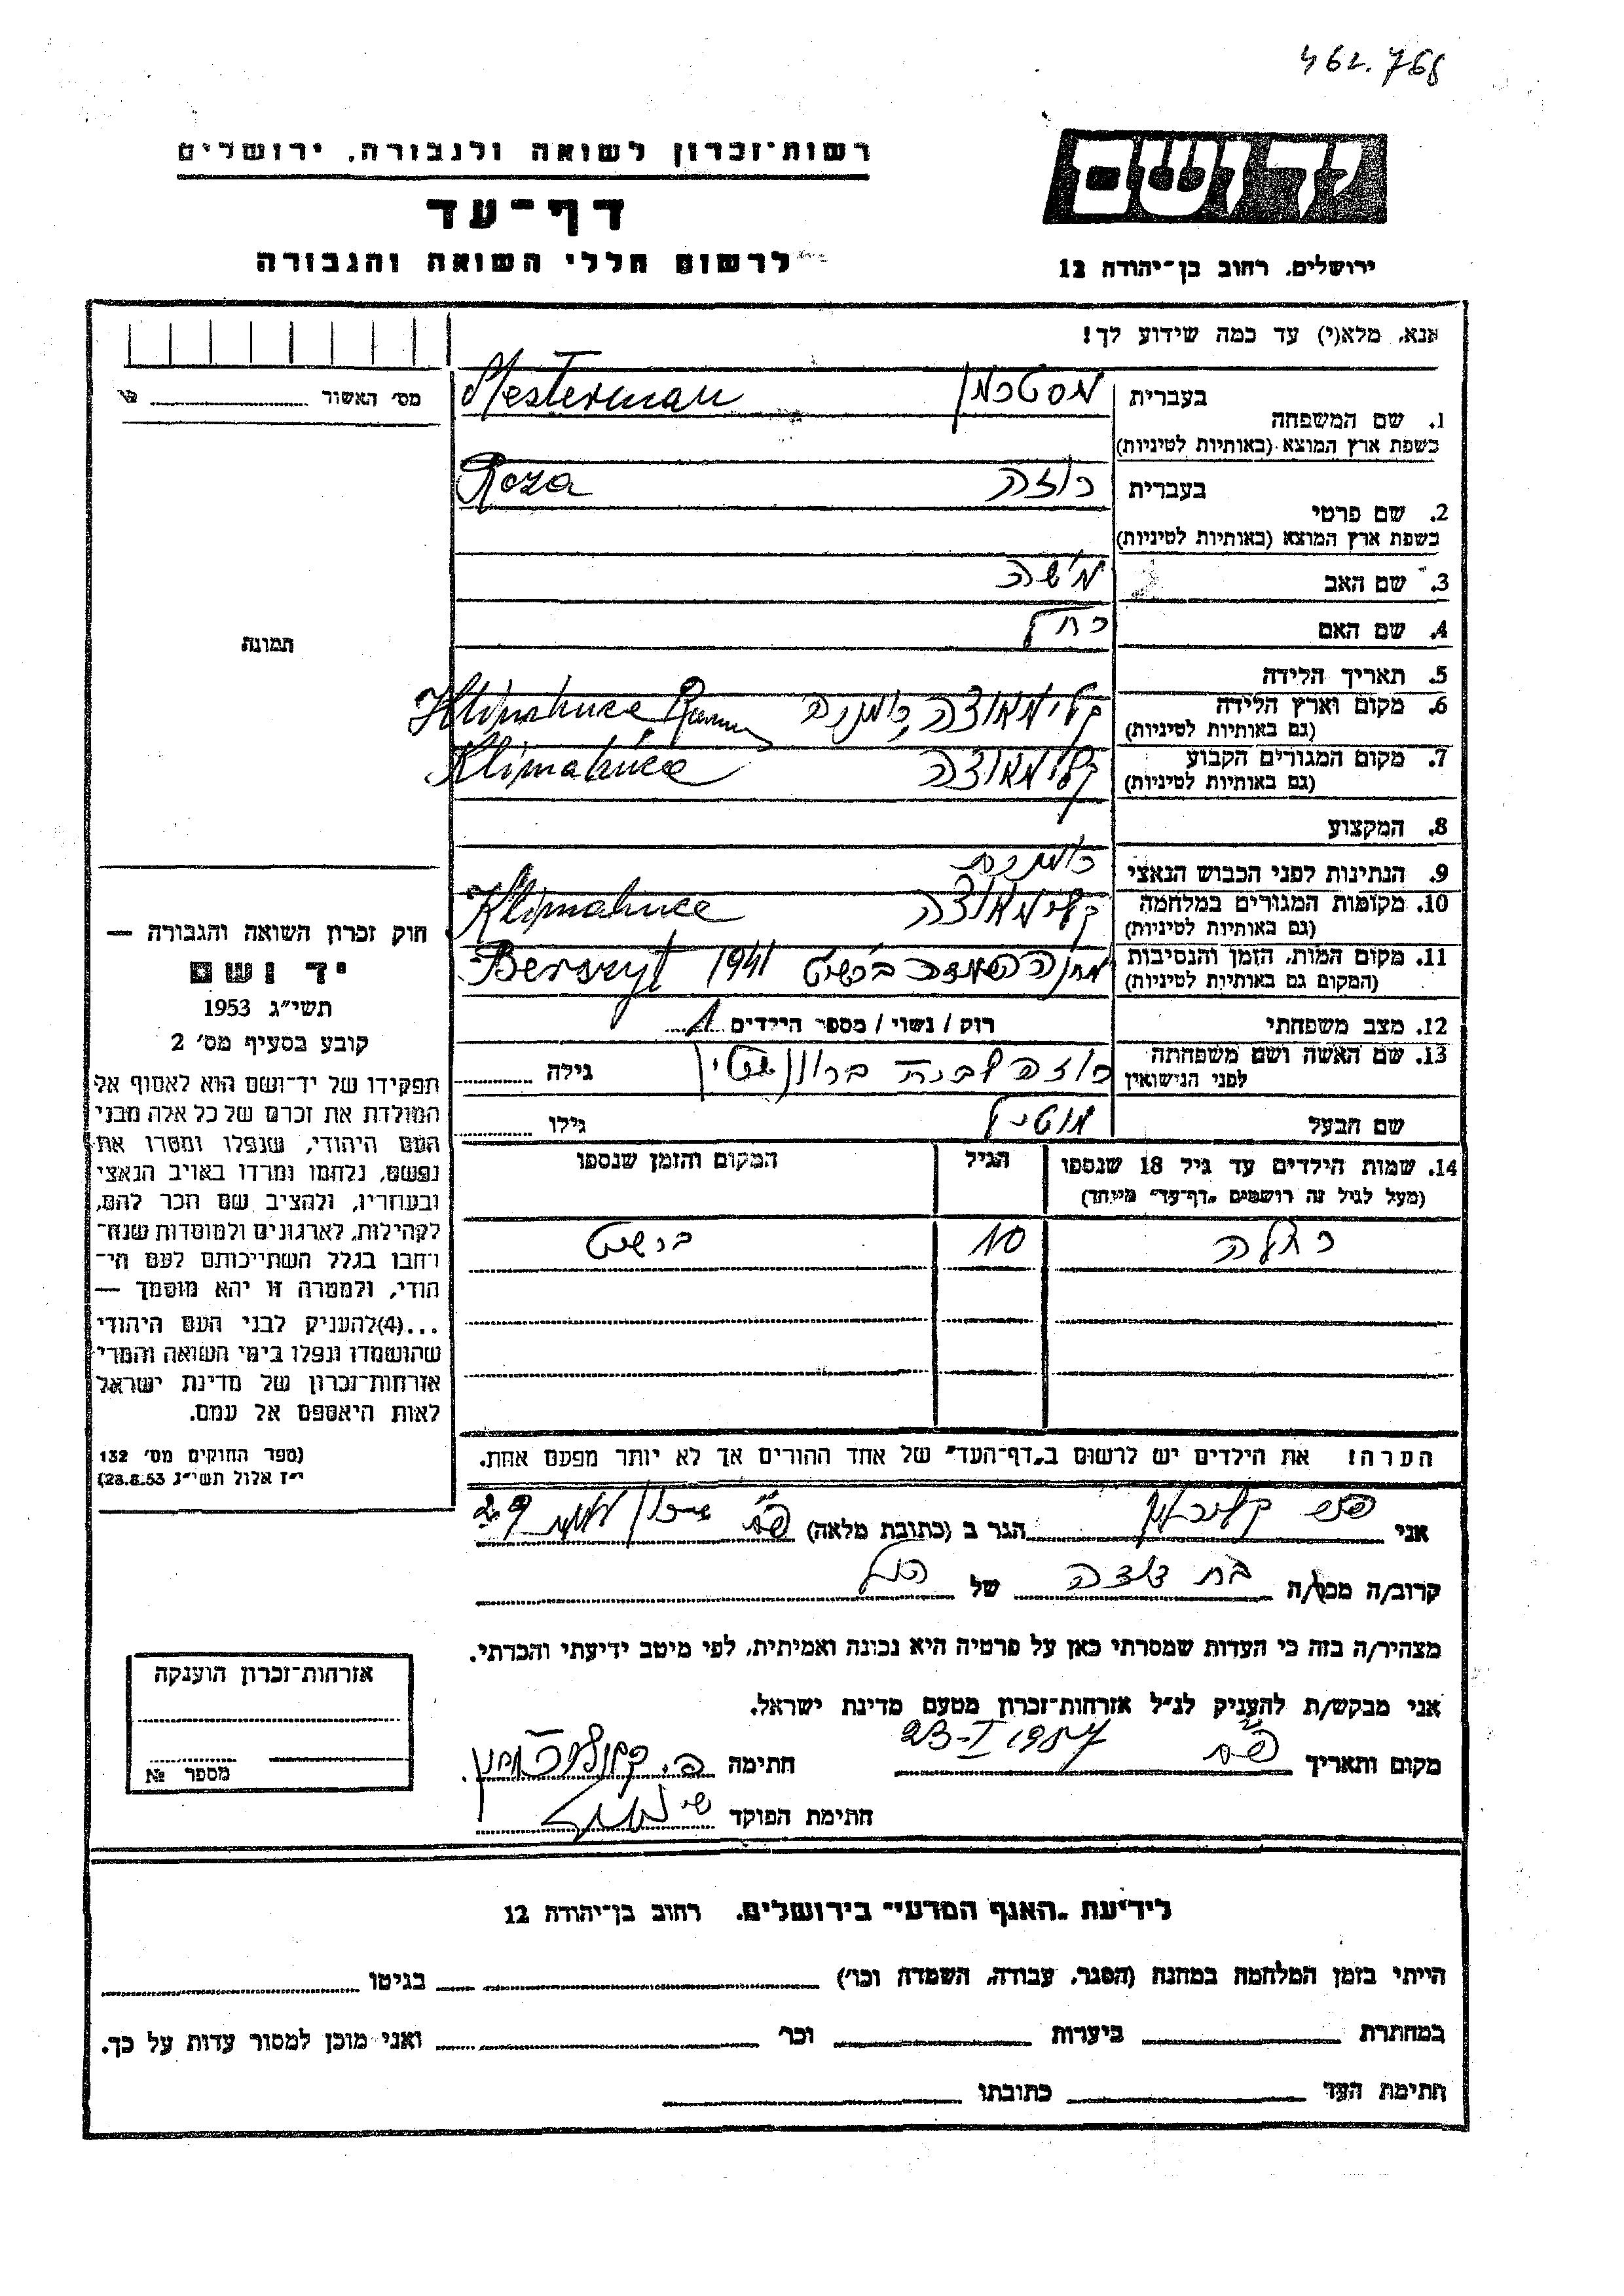 462.768
רשות-זכרון לשואה ולגבורה, ירושלים
יד ושם
דף-עד
לרשום חללי השואה והגבורה
ירושלים, רחוב בן-יהודה 12
אנא, מלא(י) עד כמה שידוע לך!
מס' האשור №
1. שם המשפחה
בעברית מסטרמן
כשפת ארץ המוצא (באותיות לטיניות) Mesterman
2. שם פרטי
בעברית רוזה
כשפת ארץ המוצא (באותיות לטיניות) Roza
3. שם האב משה
4. שם האם רחל
תמונה
5. תאריך הלידה
6. מקום וארץ הלידה קלימאוצה, רומניה Klimahuce
(גם באותיות לטיניות)
7. מקום המגורים הקבוע קלימאוצה Klimahuce
(גם באותיות לטיניות)
8. המקצוע
9. הנתינות לפני הכבוש הנאצי רומנית
10. מקומות המגורים במלחמה קלימאוצה Klimahuce
(גם באותיות לטיניות)
11. מקום המות, הזמן והנסיבות מחנה השמדה ברשיט 1941 Berszyt
(המקום גם באותיות לטיניות)
12. מצב משפחתי רווק / נשוי / מספר הילדים 1
13. שם האשה ושם משפחתה רוזה לבית ברונשטין גילה
לפני הנישואין
שם הבעל מוטיל גילו
14. שמות הילדים עד גיל 18 שנספו הגיל המקום והזמן שנספו
(מעל לגיל זה רושמים „דף-עד" מיוחד)
רחלה 10 ברשיט
חוק זכרון השואה והגבורה —
יד ושם
תשי"ג 1953
קובע בסעיף מס' 2
תפקידו של יד-ושם הוא לאסוף אל
המולדת את זכרם של כל אלה מבני
העם היהודי, שנפלו ומסרו את
נפשם, נלחמו ומרדו באויב הנאצי
ובעוזריו, ולהציב שם וזכר להם,
לקהילות, לארגונים ולמוסדות שנח-
רבו בגלל השתייכותם לעם הי-
הודי, ולמטרה זו יהא מוסמך —
...(4)להעניק לבני העם היהודי
שהושמדו ונפלו בימי השואה והמרי
אזרחות-זכרון של מדינת ישראל
לאות היאספם אל עמם.
(ספר החוקים מס' 132
י"ז אלול תשי"ג 28.8.53)
הערה! את הילדים יש לרשום ב„דף-העד" של אחד ההורים אך לא יותר מפעם אחת.
אני הגר ב (כתובת מלאה) 29
קרוב/ה מכר/ה בת דודה של הנ"ל
מצהיר/ה בזה כי העדות שמסרתי כאן על פרטיה היא נכונה ואמיתית, לפי מיטב ידיעתי והכרתי.
אני מבקש/ת להעניק לנ"ל אזרחות-זכרון מטעם מדינת ישראל.
מקום ותאריך 23-I 1957 חתימה
חתימת הפוקד
אזרחות-זכרון הוענקה
מספר №
לידיעת „האגף המדעי" בירושלים, רחוב בן-יהודה 12
הייתי בזמן המלחמה במחנה (הסגר, עבודה, השמדה וכו') בגיטו
במחתרת ביערות וכו' ואני מוכן למסור עדות על כך.
חתימת העד כתובתו